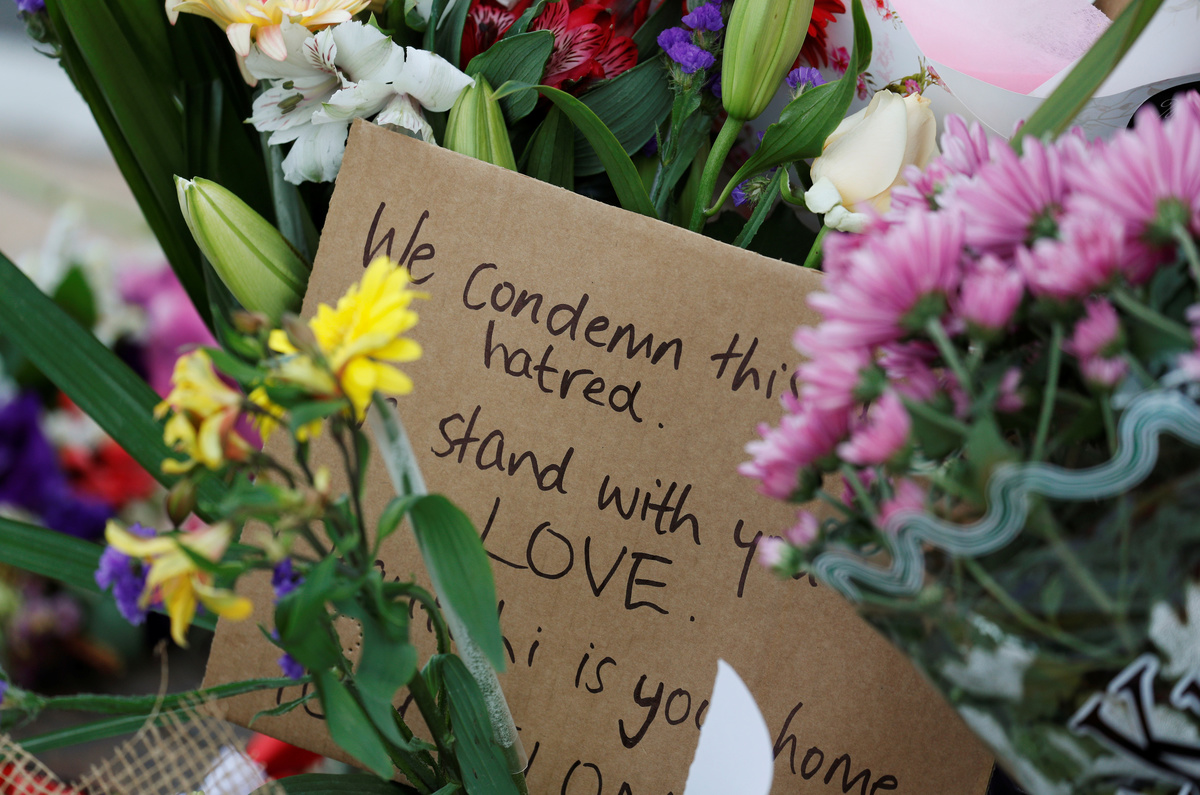 We Condemn this
hatred.
stand with
LOVE.
is your home